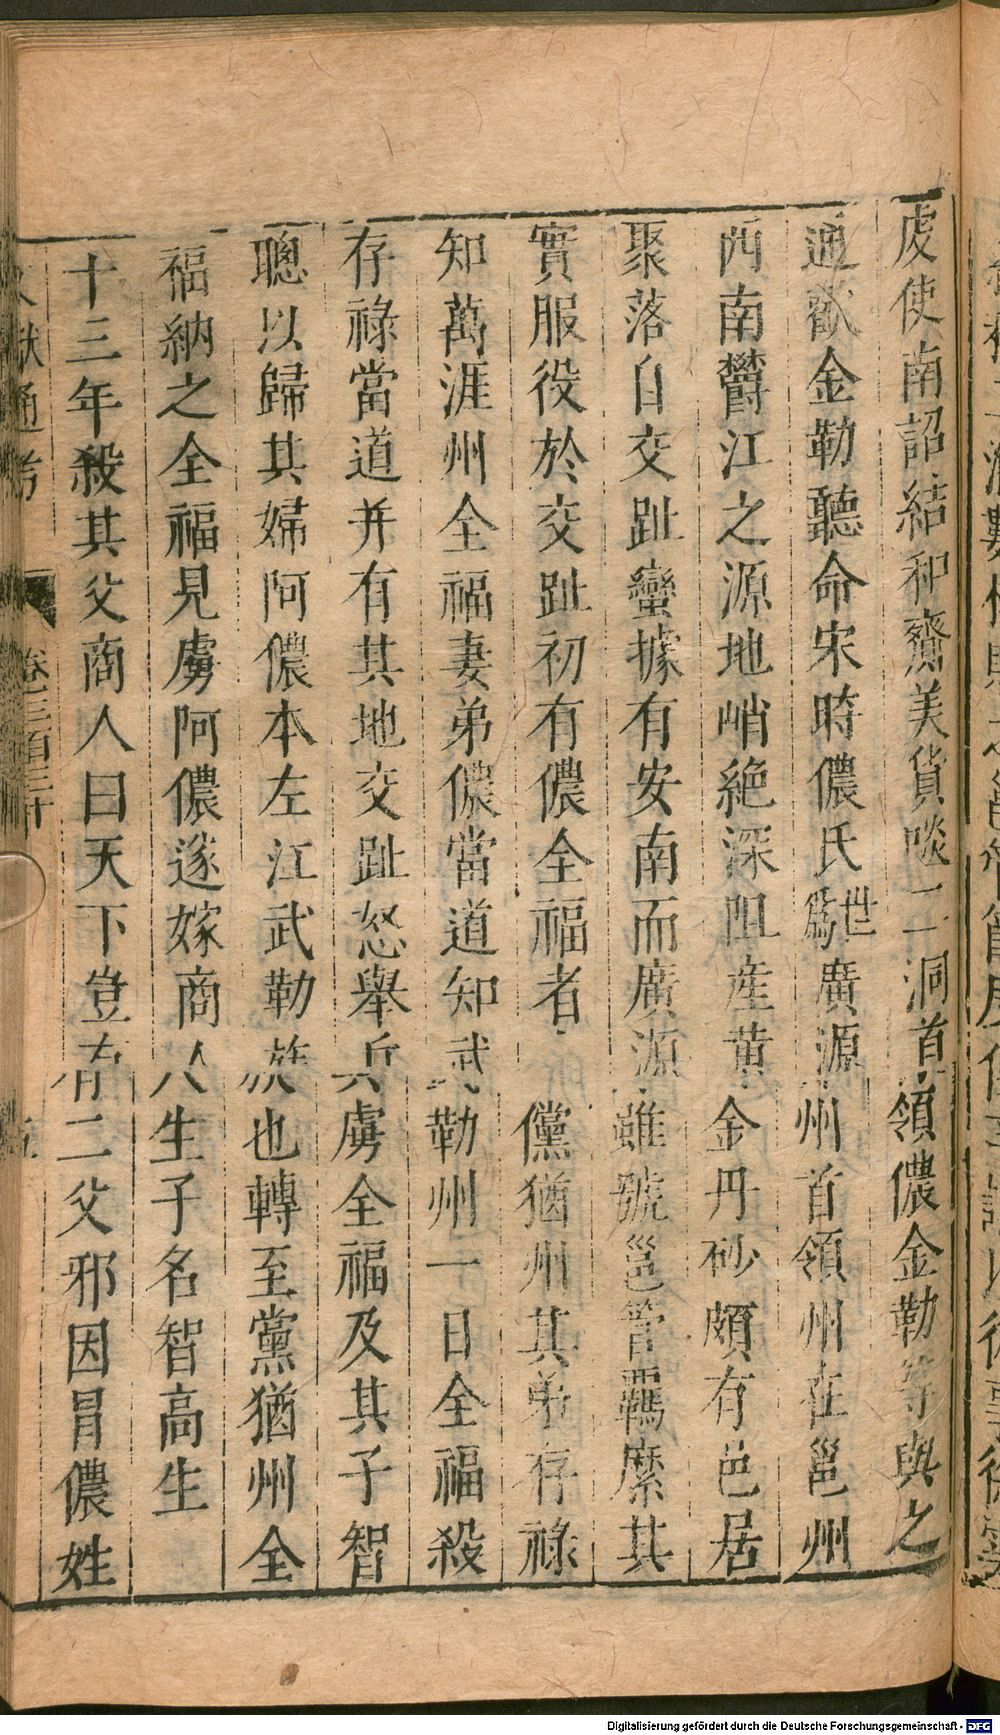 虔使南詔結和齎美貨啖二洞首領儂金勒等與之
通歡金勒聽命宋時儂氏世爲廣源州首領州在邕州
西南欝江之源地峭絶深阻産黄金丹砂頗有邑居
聚落自交趾蠻據有安南而廣源雖號邕管羈縻其
實服役於交趾初有儂全福者儻猶州其弟存祿
知萬涯州全福妻弟儂當道知武勒州一日全福殺
存祿當道并有其地交趾怒舉兵虜全福及其子智
聰以歸其婦阿儂本左江武勒族也轉至黨猶州全
福納之全福見虜阿儂遂嫁商人生子名智高生
十三年殺其父商人曰天下豈有二父邪因冒儂姓
文獻通考 卷三百三十 五
Digitalisierung gefördert durch die Deutsche Forschungsgemeinschaft - DFG